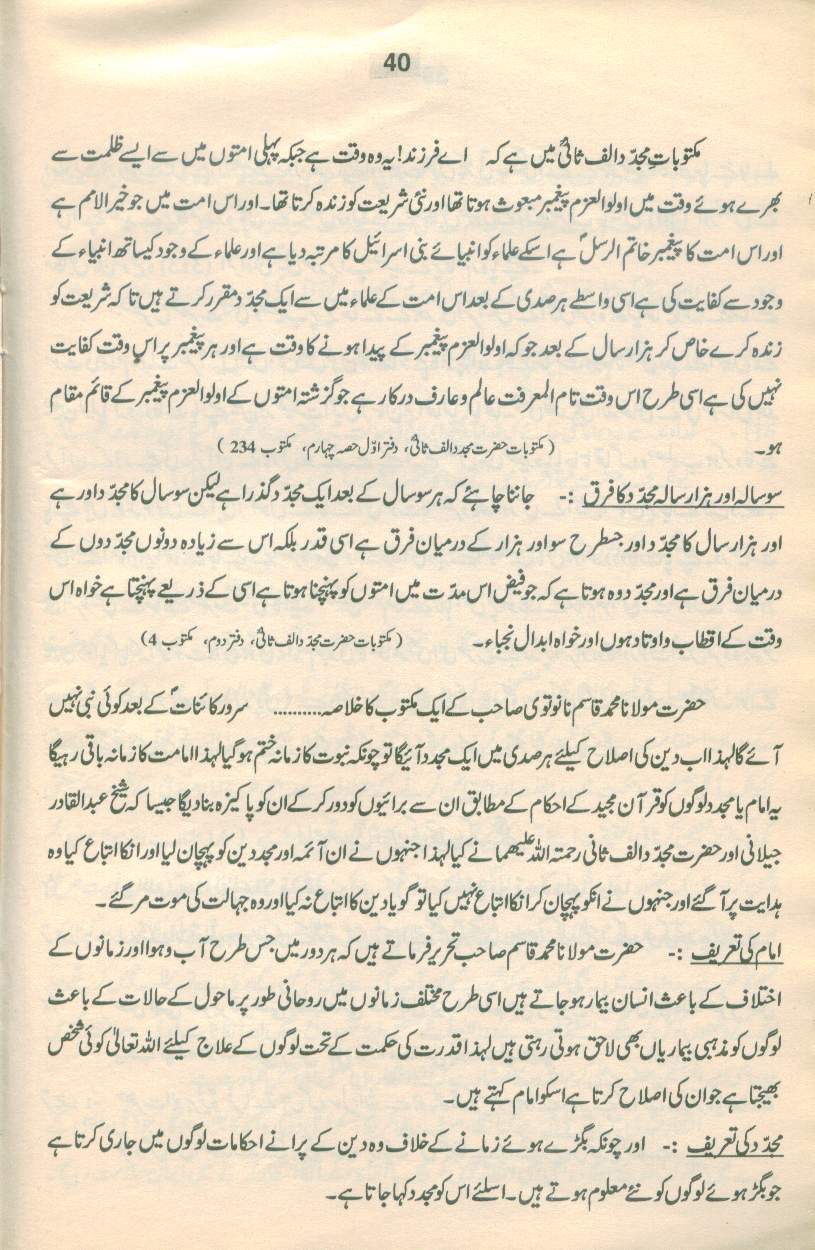 40
مکتوباتِ مجدّد الف ثانیؒ میں ہے کہ اے فرزند! یہ وہ وقت ہے جبکہ پہلی امتوں میں سے ایسے ظلمت سے
بھرے ہوئے وقت میں اولوالعزم پیغمبر مبعوث ہوتا تھا اور نئی شریعت کو زندہ کرتا تھا۔ اور اس امت میں جو خیر الامم ہے
اور اس امت کا پیغمبر خاتم الرسلؐ ہے اسکے علماء کو انبیائے بنی اسرائیل کا مرتبہ دیا ہے اور علماء کے وجود کیساتھ انبیاء کے
وجود سے کفایت کی ہے اسی واسطے ہر صدی کے بعد اس امت کے علماء میں سے ایک مجدّد مقرر کرتے ہیں تاکہ شریعت کو
زندہ کرے خاص کر ہزار سال کے بعد جو کہ اولوالعزم پیغمبر کے پیدا ہونے کا وقت ہے اور ہر پیغمبر پر اس وقت کفایت
نہیں کی ہے اسی طرح اس وقت تام المعرفت عالم و عارف درکار ہے جو گزشتہ امتوں کے اولوالعزم پیغمبر کے قائم مقام
ہو۔ (مکتوبات حضرت مجدد الف ثانیؒ، دفتر اوّل حصہ چہارم، مکتوب 234)
سو سالہ اور ہزار سالہ مجدّد کا فرق :- جاننا چاہئے کہ ہر سو سال کے بعد ایک مجدّد گذرا ہے لیکن سو سال کا مجدّد اور ہے
اور ہزار سال کا مجدّد اور جسطرح سو اور ہزار کے درمیان فرق ہے اسی قدر بلکہ اس سے زیادہ دونوں مجدّدوں کے
درمیان فرق ہے اور مجدّد وہ ہوتا ہے کہ جو فیض اس مدّت میں امتوں کو پہنچنا ہوتا ہے اسی کے ذریعے پہنچتا ہے خواہ اس
وقت کے اقطاب و اوتاد ہوں اور خواہ ابدال نجباء۔ (مکتوبات حضرت مجدّد الف ثانیؒ، دفتر دوم، مکتوب 4)
حضرت مولانا محمد قاسم نانوتوی صاحب کے ایک مکتوب کا خلاصہ.......... سرور کائناتؐ کے بعد کوئی نبی نہیں
آئے گا لہذا اب دین کی اصلاح کیلئے ہر صدی میں ایک مجدد آئیگا تو چونکہ نبوت کا زمانہ ختم ہو گیا لہذا امامت کا زمانہ باقی رہیگا
یہ امام یا مجدد لوگوں کو قرآن مجید کے احکام کے مطابق ان سے برائیوں کو دور کر کے ان کو پاکیزہ بنادیگا جیسا کہ شیخ عبدالقادر
جیلانی اور حضرت مجدّد الف ثانی رحمتہ اللہ علیھما نے کیا لہذا جنہوں نے ان آئمہ اور مجددین کو پہچان لیا اور انکا اتباع کیا وہ
ہدایت پر آ گئے اور جنہوں نے انکو پہچان کر انکا اتباع نہیں کیا تو گویا دین کا اتباع نہ کیا اور وہ جہالت کی موت مر گئے۔
امام کی تعریف :- حضرت مولانا محمد قاسم صاحب تحریر فرماتے ہیں کہ ہر دور میں جس طرح آب و ہوا اور زمانوں کے
اختلاف کے باعث انسان بیمار ہو جاتے ہیں اسی طرح مختلف زمانوں میں روحانی طور پر ماحول کے حالات کے باعث
لوگوں کو مذہبی بیماریاں بھی لاحق ہوتی رہتی ہیں لہذا قدرت کی حکمت کے تحت لوگوں کے علاج کیلئے اللہ تعالیٰ کوئی شخص
بھیجتا ہے جو ان کی اصلاح کرتا ہے اسکو امام کہتے ہیں۔
مجدّد کی تعریف :- اور چونکہ بگڑے ہوئے زمانے کے خلاف وہ دین کے پرانے احکامات لوگوں میں جاری کرتا ہے
جو بگڑ ہوئے لوگوں کو نئے معلوم ہوتے ہیں۔ اسلئے اس کو مجدد کہا جاتا ہے۔